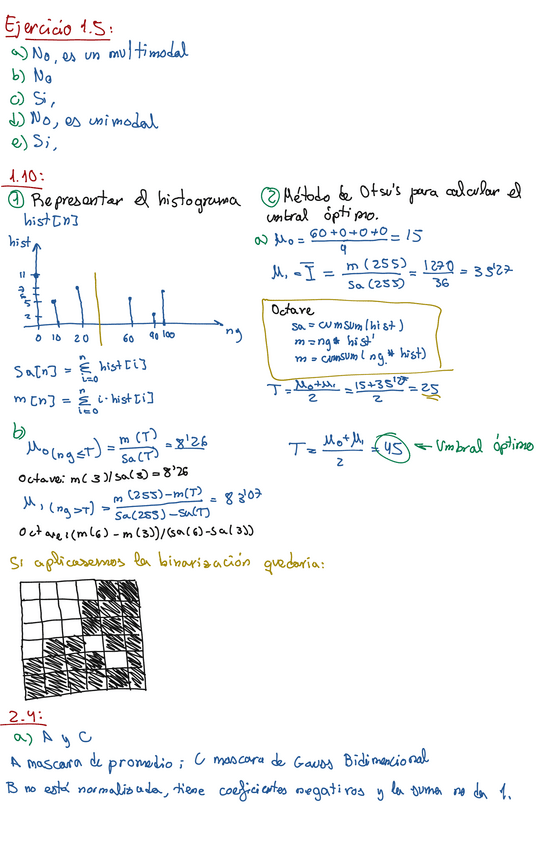 Ejercicio 1.5:
a) No, es un multimodal
b) No
c) Si,
d) No, es unimodal
e) Si,
1.10:
① Representar el histograma
hist[n]
hist
11
7
5
2
0 10 20 60 90 100 ng
Sa[n] = Σ hist[i]
n
i=0
m[n] = Σ i·hist[i]
n
i=0
② Método de Otsu's para calcular el
umbral óptimo.
a) μ₀ = (60+0+0+0)/4 = 15
μ₁ = I̅ = m(255)/Sa(255) = 1270/36 = 35'27
Octave
sa = cumsum(hist)
m = ng* hist'
m = cumsum(ng.* hist)
T = (μ₀+μ₁)/2 = (15+35'27)/2 = 25
b)
μ₀(ng≤T) = m(T)/Sa(T) = 8'26
Octave: m(3)/sa(3) = 8'26
μ₁(ng>T) = (m(255)-m(T))/(Sa(255)-Sa(T)) = 83'07
Octave: (m(6)-m(3))/(sa(6)-sa(3))
T = (μ₀+μ₁)/2 = 45 ← Umbral óptimo
Si aplicasemos la binarización quedaria:
2.4:
a) A y C
A mascara de promedio ; C mascara de Gauss Bidimencional
B no está normalizada, tiene coeficientes negativos y la suma no da 1.